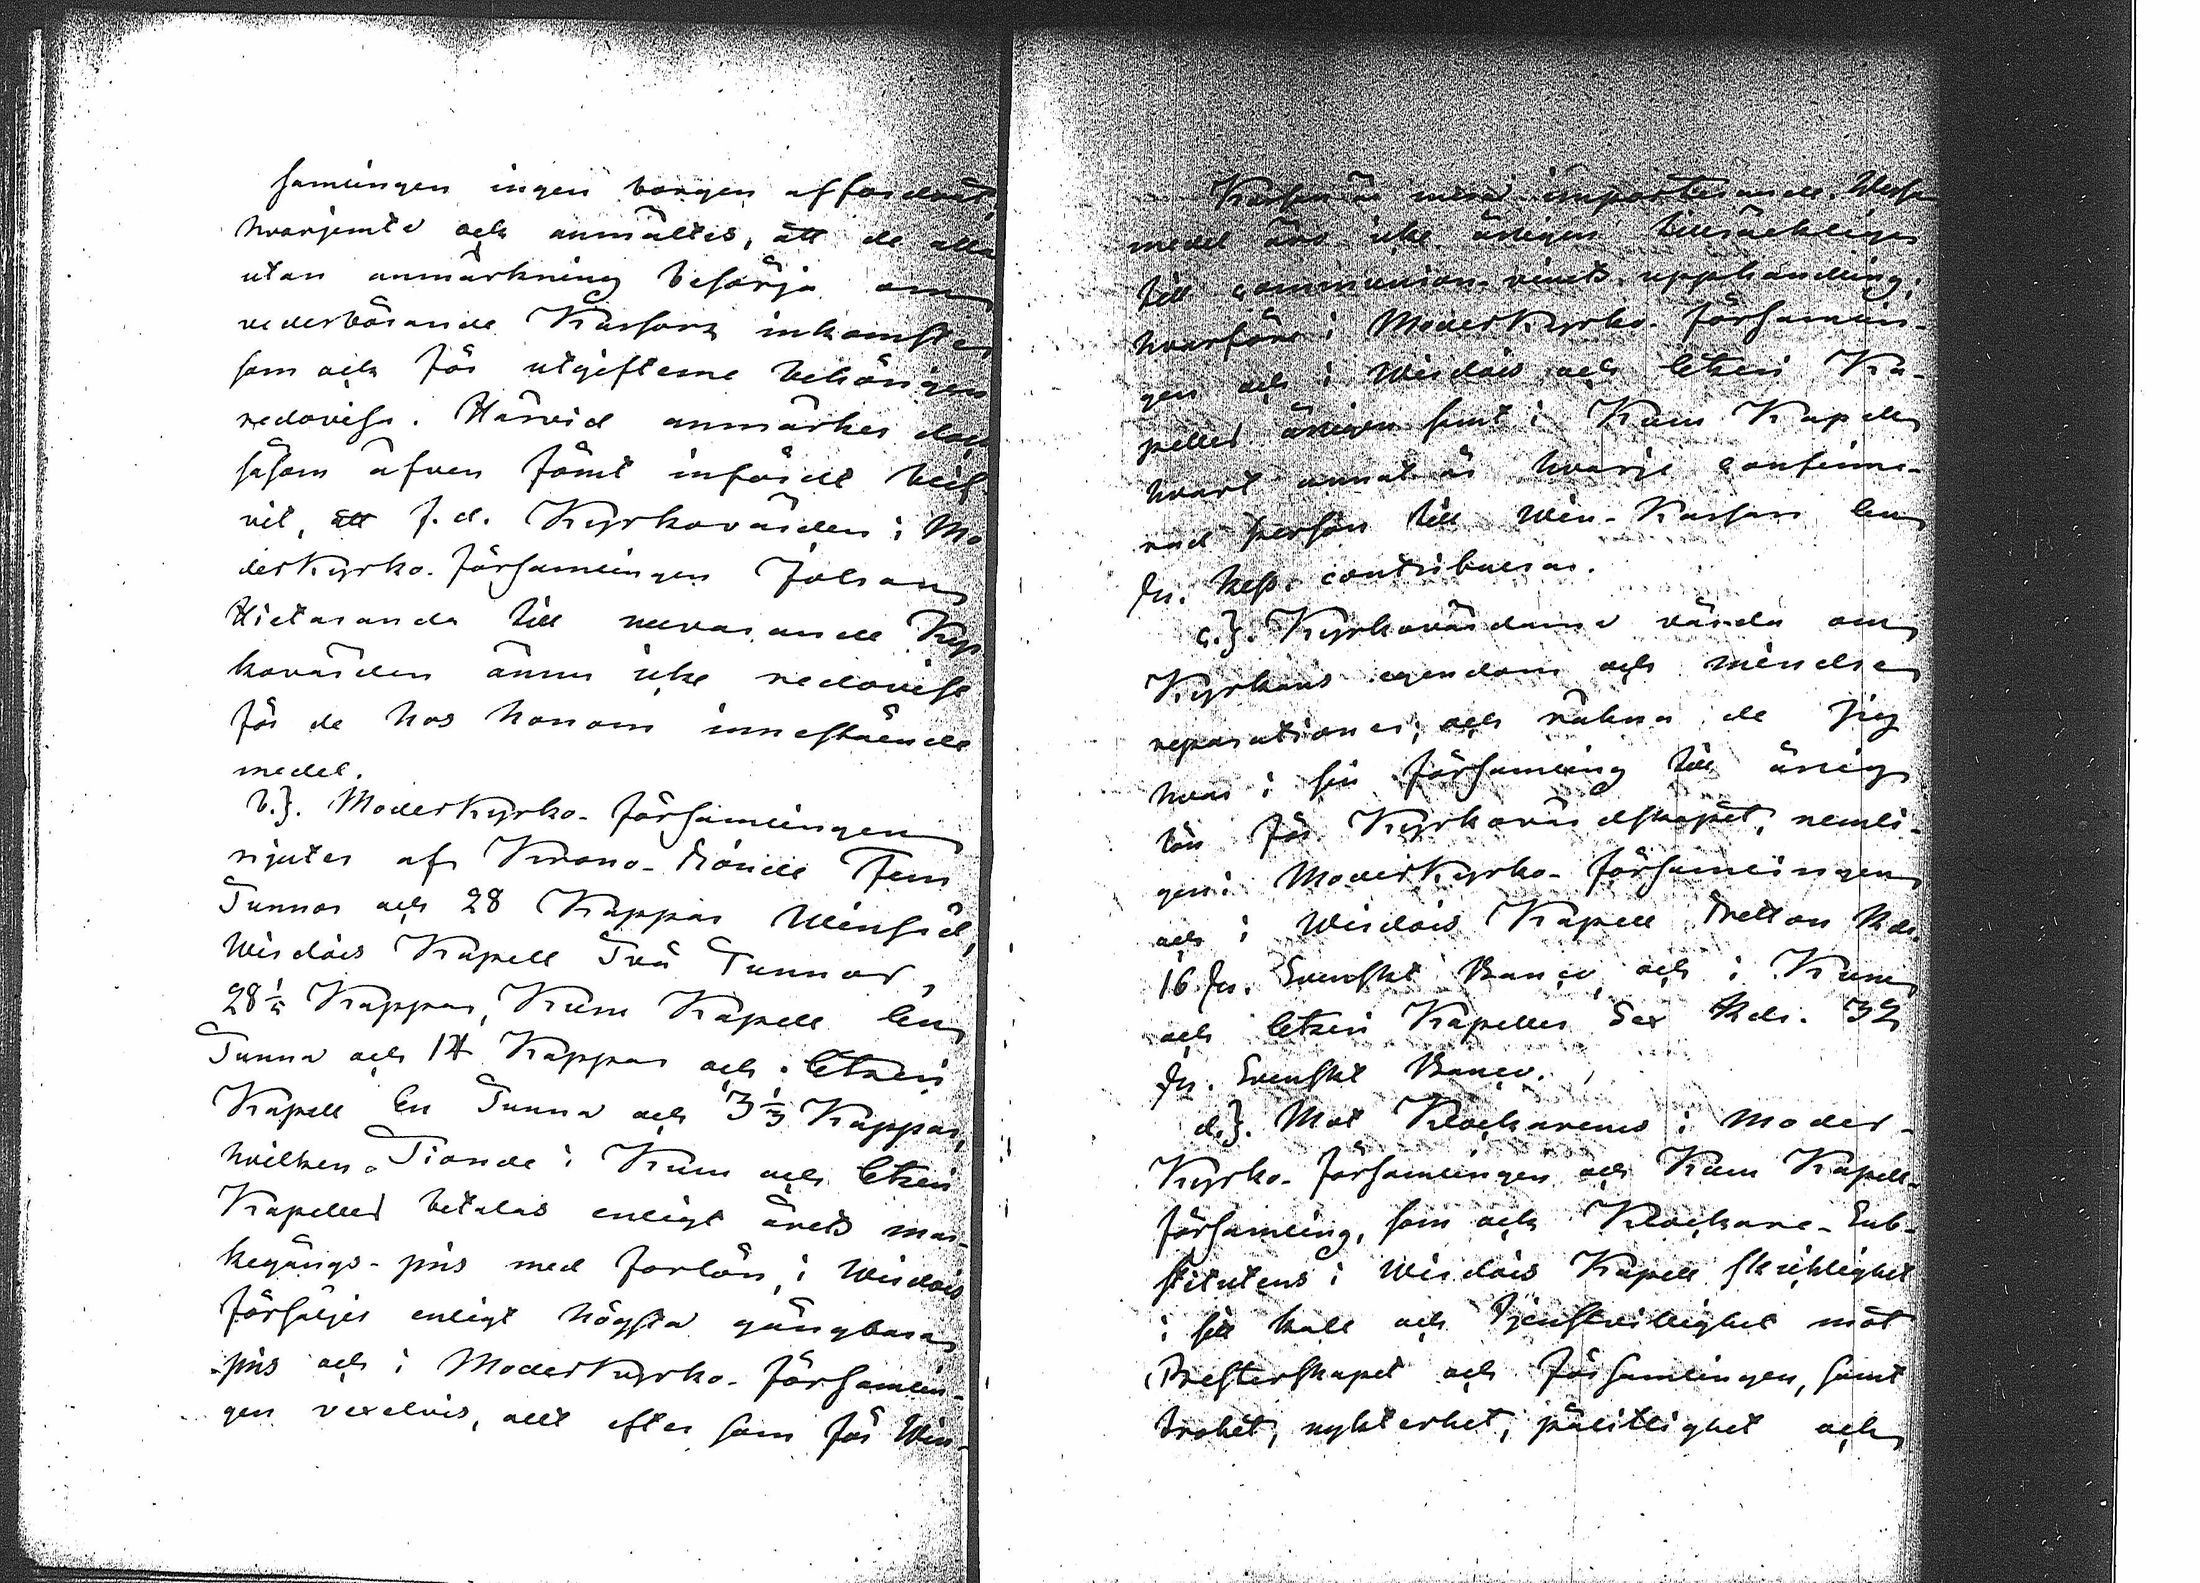 samlingen ingen borgen affordrat,
hvarjemte ock anmältes, att de alla
utan anmärkning besörja om
vederbörande Kassors inkomster
som ock för utgifterne behörigen
redovisa. Härvid anmärkes dock
såsom äfven förut infördt blif-
vit, att f.d. Kyrkovärden i Mo
derkyrko-församlingen Johan
Hietaranda till nuvarande Kyr
kovärden ännu icke redovist
för de hos honom innestående
medel.
b.). Moderkyrko-församlingen
njuter af Krono-Tionde Fem
Tunnor och 28 Kappar Winsäd,
Wirdois Kapell Två Tunnor,
28½ Kappar, Kuru Kapell en
Tunna och 14 Kappar och Etseri
Kapell En Tunna och 3⅓ Kappar,
hvilken Tionde i Kuru och Etseri
Kapeller betalas enligt årets mar-
kegångs-pris med forlön, i Wirdois
försäljes enligt högsta gångbara
pris och i Moderkyrko-församlin-
gen vexelvis, allt efter som för Win-
Kassan är mera importerande. Desse
medel äro icke årligen tillräcklige
till communion-vinets upphandling;
hvarföre i Moderkyrko-församlin-
gen och i Wirdois och Etseri Ka-
peller årligen samt i Kuru Kapell
hvart annat år hvarje confirme-
rad person till Win-Kassan en
sk. Rgs. contribuerar.
c.). Kyrkovärdarne vårda om
Kyrkans egendom och mindre
reparationer; och räkna de sig
hvar i sin församling till årlig
lön för Kyrkovärdskapet, nemli-
gen: Moderkyrko-församlingen
och i Wirdois Kapell Tretton Rdr.
16 sk. Svenskt Banco, och i Kuru
och Etseri Kapeller Sex Rdr. 32
sk. Svenskt Banco.
d.). Mot Klockarenes i Moder-
Kyrko-församlingen och Kuru Kapell-
församling, som ock Klockare-Sub-
stitutens i Wirdois Kapell skicklighet
i sitt kall och tjenstvillighet mot
Presterskapet och församlingen, samt
trohet, nykterhet, pålitlighet och